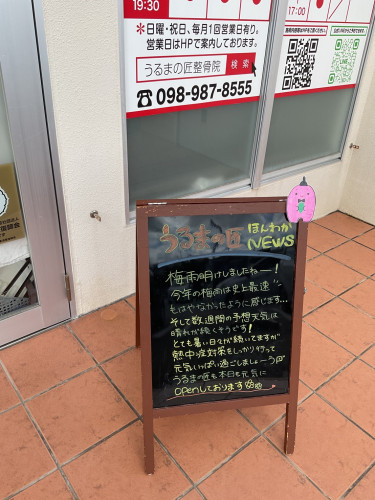 19:30
＊日曜・祝日、毎月1回営業日有り。
営業日はHPで案内しております。
うるまの匠整骨院 検索
☎098-987-8555
うるまの匠
ほんわか
NEWS
梅雨明けしましたねー!
今年の梅雨は史上最速
もはやなかったように感じます…
そして数週間の予想天気は
晴れが続くそうです!
とても暑い日々が続いてますが
熱中症対策をしっかり行って
元気いっぱい過ごしましょーう
うるまの匠も本日も元気に
openしております